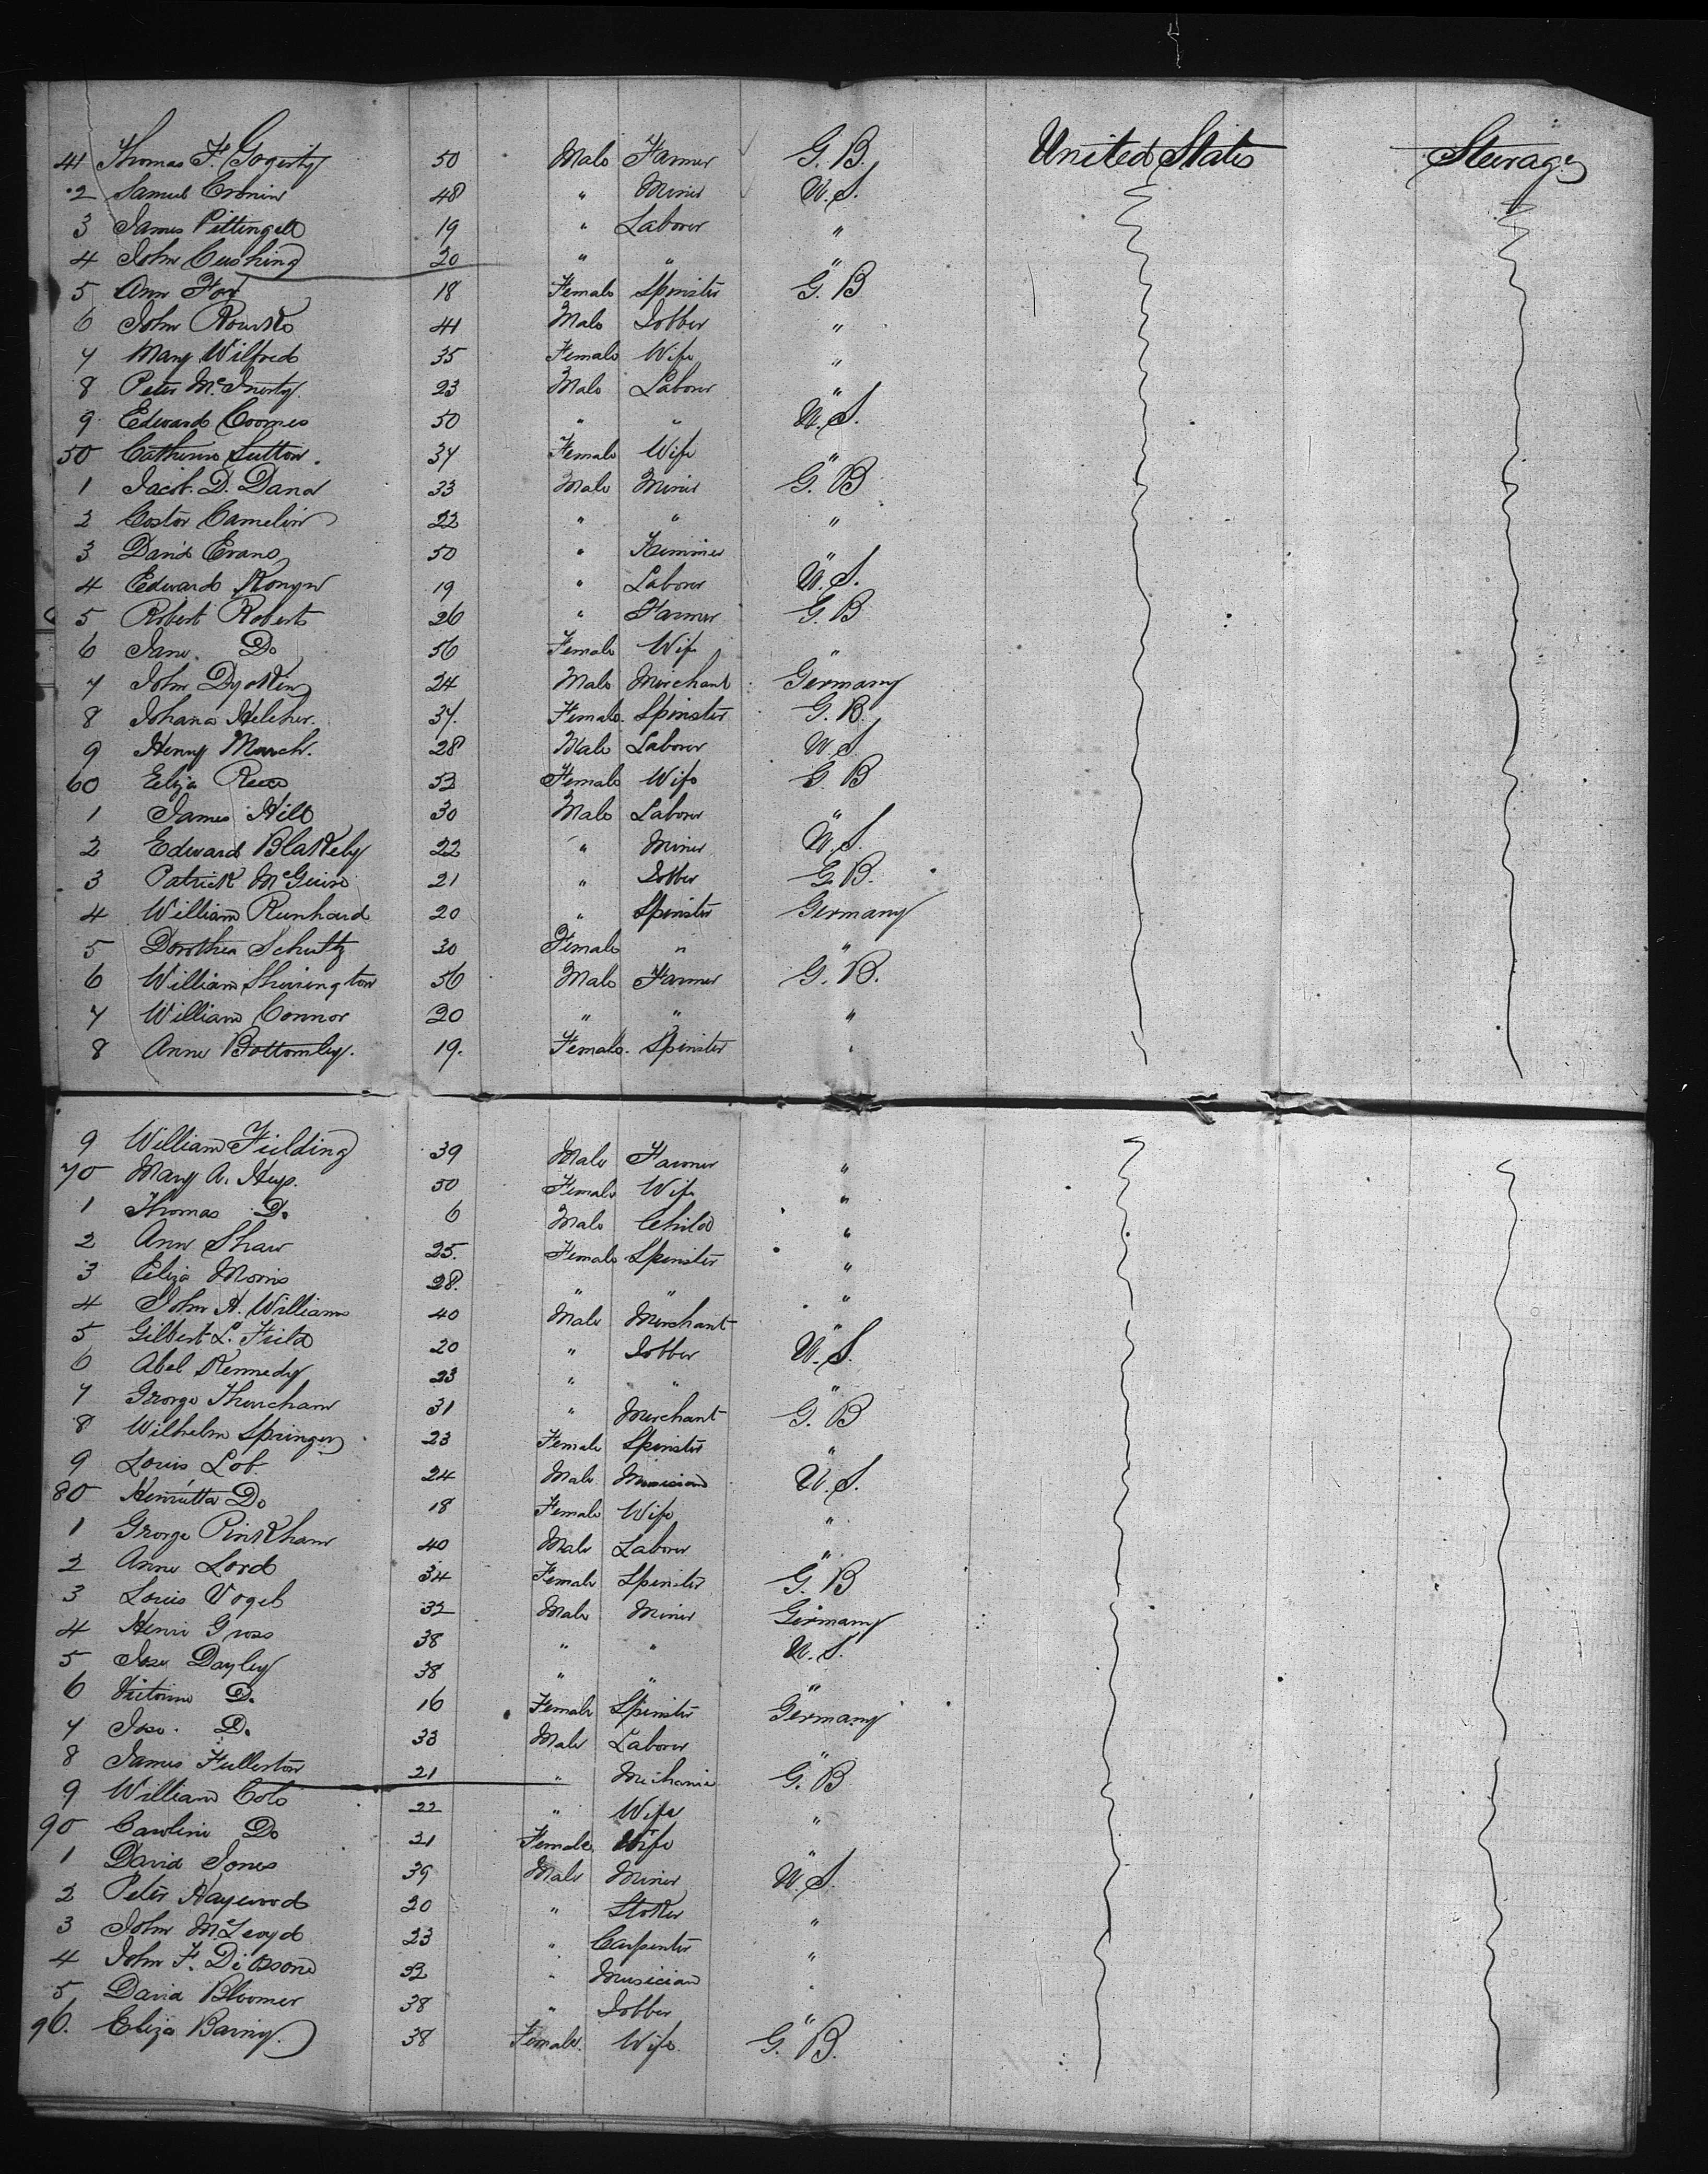 41 Thomas F. Gogerty 50 Male Farmer G. B. United States Steerage
2 Samuel Cronin 48 " Miner U. S.
3 James Pittingell 19 " Laborer "
4 John Cushing 20 " " "
5 Ann Fox 18 Female Spinster G. B
6 John Rourke 41 Male Jobber "
7 Mary Wilfred 35 Female Wife "
8 Peter 23 Male Laborer "
9 Edward Coomes 50 " " U. S.
50 Catherine Sutton. 37 Female Wife "
1 Jacob. D. Dana 33 Male Miner G. B
2 Costor Camelin 22 " " "
3 David Evans 50 " "
4 Edward 19 " Laborer U. S.
5 Robert Roberts 26 " Farmer G. B
6 Jane. Do 56 Female Wife "
7 John 24 Male Merchant Germany
8 Johana Keleher. 37. Female. Spinster G. B.
9 Henry March. 28 Male Laborer U. S
60 Eliza Rees 53 Female Wife G. B
1 James Hill 30 Male Laborer "
2 Edward Blakely 22 " Miner U. S.
3 Patrick McGuire 21 " Jobber G. B.
4 William Runhard 20 " Spinster Germany
5 Dorothea Schultz 30 Female " "
6 William Sherington 56 Male Farmer G. B.
7 William Connor 20 " " "
8 Anne Bottomley. 19. Female. Spinster "
9 William Fielding 39 Male Farmer "
70 Mary A. Heys. 50 Female Wife "
1 Thomas Do 6 Male Child "
2 Ann Shaw 25. Female Spinster "
3 Eliza Morris 28. " " "
4 John H. Williams 40 Male Merchant "
5 Gilbert L. Field 20 " Jobber U. S.
6 Abel Kennedy 23 " " "
7 George 31 " Merchant G. B
8 Wilhelm Springer 23 Female Spinster "
9 Louis Lob. 24 Male Musician U. S.
80 Henrietta Do 18 Female Wife "
1 George Pinkham 40 Male Laborer "
2 Anne Lord 34 Female Spinster G. B
3 Louis Vogel 32 Male Miner Germany
4 Henri Gross 38 " " U. S.
5 Dayley 38 " " "
6 Do 16 Female Spinster Germany
7 Jose. Do 33 Male Laborer "
8 James Fullerton 21 " Mechanic G. B
9 William Cole 22 " Wife "
90 Caroline Do 21 Female. Wife "
1 David Jones 39 Male Miner U. S.
2 Peter Haywood 20 " Stoker "
3 John 23 " Carpenter "
4 John F. 32 " Musician "
5 David Bloomer 38 " Jobber "
96. Eliza 38 Female. Wife. G. B.